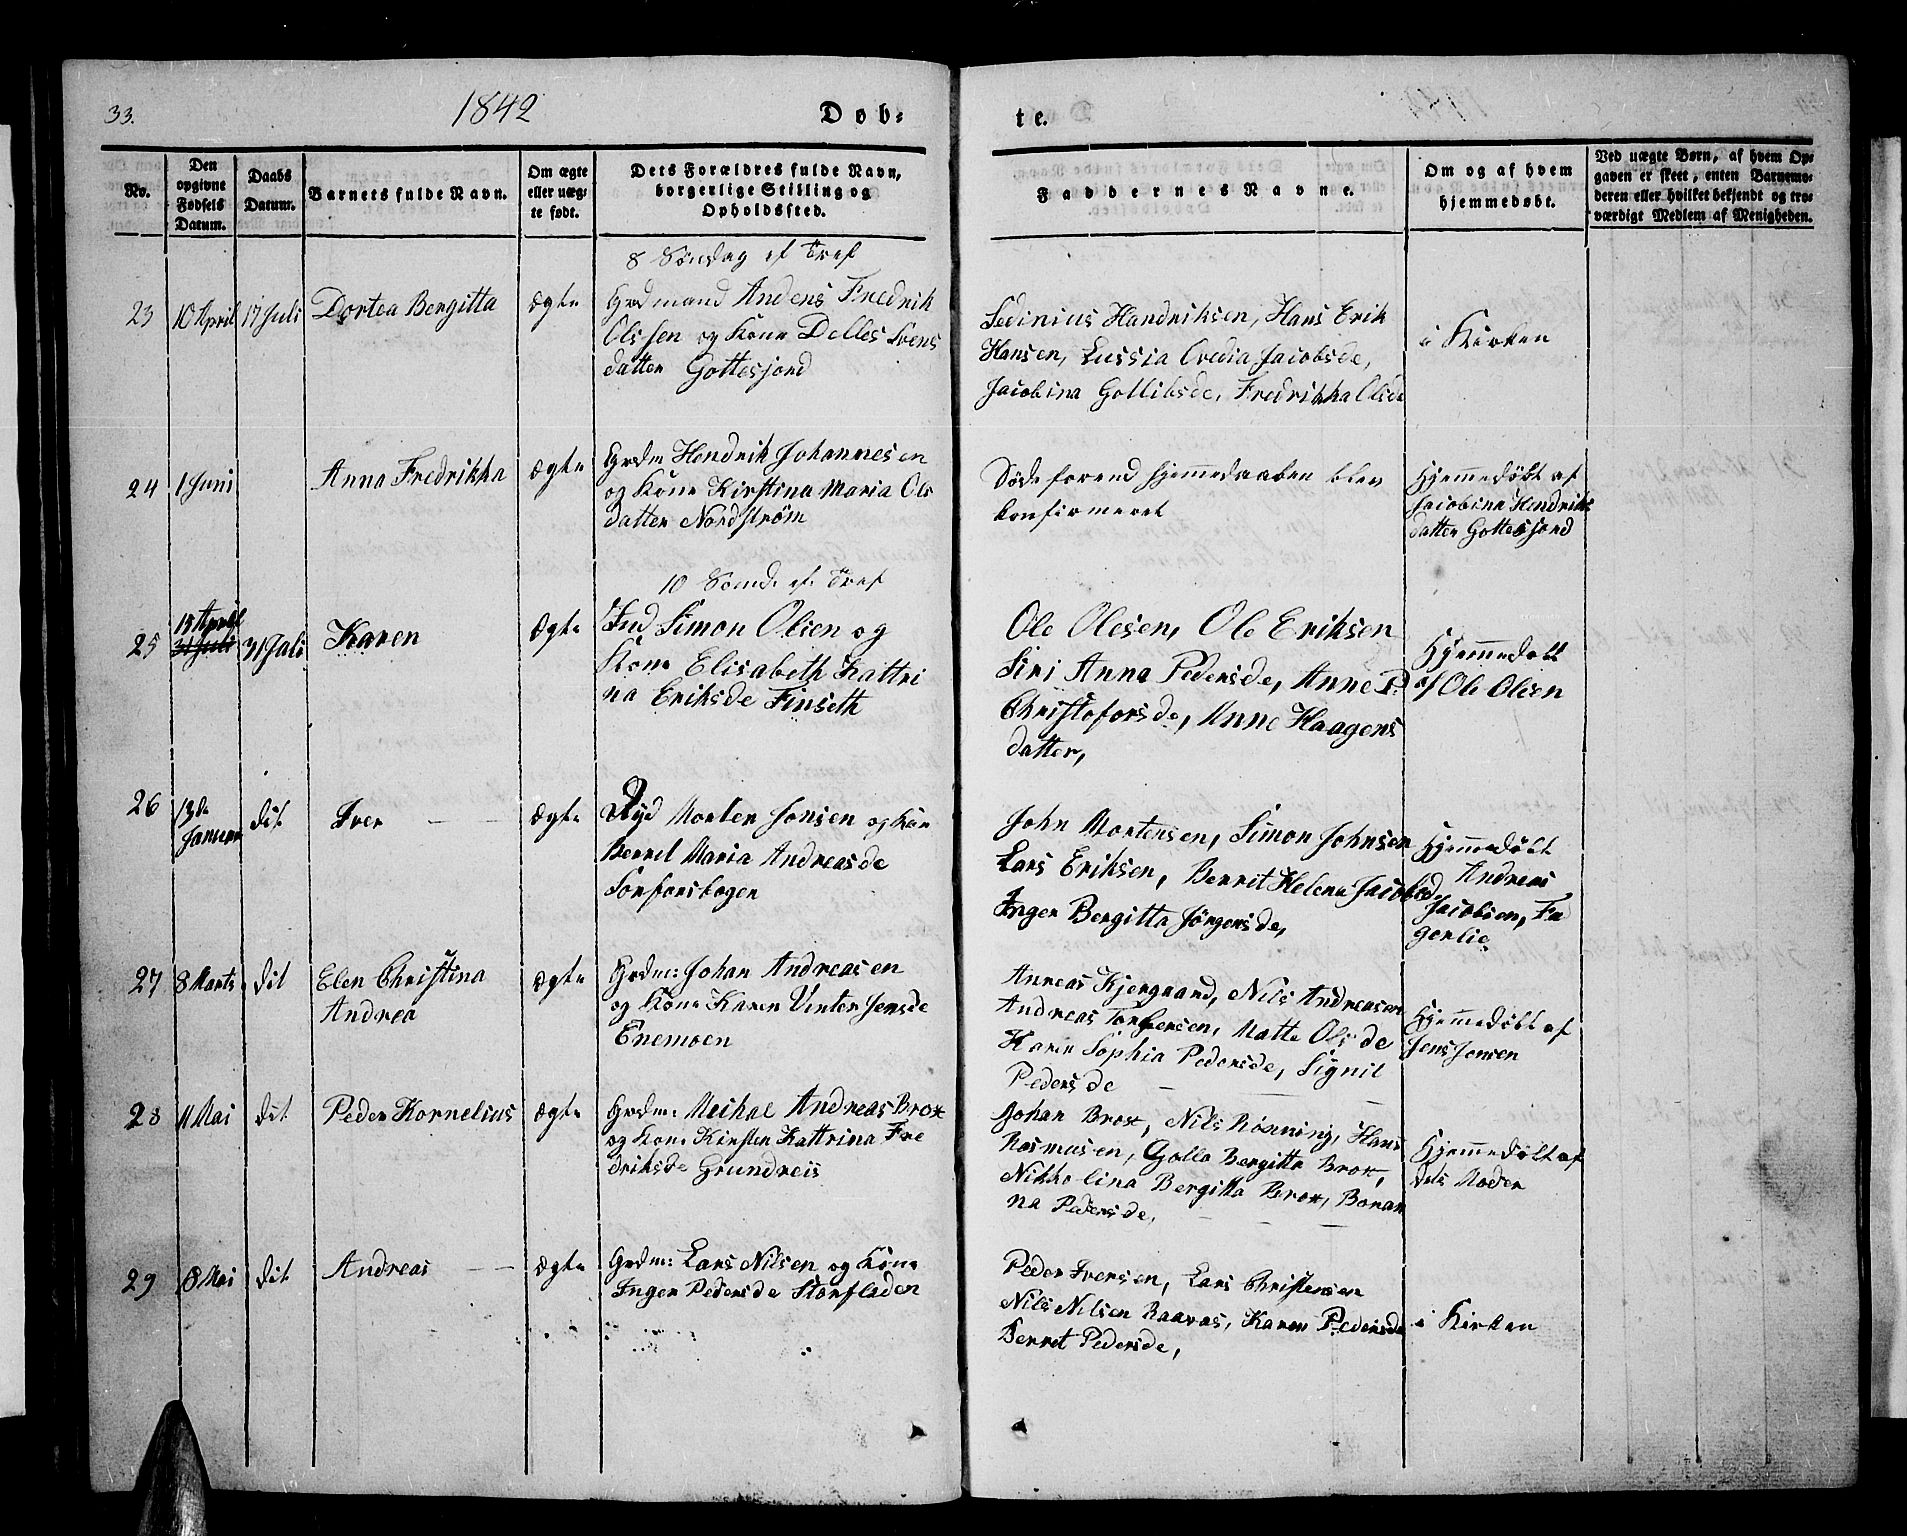 33.
1842
Døb-
te.
No.
Den
opgivne
Fødsels
Datum.
Daabs
Datum.
Barnets fulde Navn.
Om ægte
eller uæg-
te født.
Dets Forældres fulde Navn,
borgerlige Stilling og
Opholdssted.
Faddernes Navne.
Om og af hvem
hjemmedøbt.
Ved uægte Børn, af hvem Op-
gaven er skeet, enten Barnemo-
deren eller hvilket bekjendt og tro-
værdigt Medlem af Menigheden.
8 Søndag ef Tref
23
10 April
17 Juli
Dortea Bergitta
ægte
Grdmand Andens Fredrik
Olssen og Kone Delles Svens
datter Gottesjord
Sedinius Handriksen, Hans Erik
Hansen, Lussia Ovedia Jacobsde,
Jacobina Gollibsde, Fredrikka Olsde
i Kirken
24
1 Juni
Anna Fredrikka
ægte
Grdm Hendrik Johannesen
og Kone Kirstina Maria Ols
datter Nordstrøm
Døde forend hjemmedaaben blev
konfirmeret
Hjemmedøbt af
Jacobina Hendriks
datter Gottesjord
10 Sønd. ef. Tref
25
15 April
31 Juli
31 Juli
Karen
ægte
Ind Simon Olsen og
Kone Elisabeth Kattri
na Eriksde Finseth
Ole Olesen, Ole Eriksen
Siri Anna Pedersde, Anne P.
Christofersde, Anne Haagens
datter,
Hjemmedøbt
af Ole Olsen
26
13de
Januar
dit
Iver
ægte
Ryd Morten Jonsen og Kon
Berret Maria Andreasde
Sorforsbogen
John Mortensen, Simon Johnsen
Lars Eriksen, Berrit Helena Jacobsd,
Inger Bergitta Jörgensde,
Hjemmedøbt
Andreas
Jacobsen, Fa
gerlie
27
8 Marts
dit
Elen Christina
Andrea
ægte
Grdm: Johan Andreasen
og Kone Karen Vinter Jensde
Enemoen
Anreas Kjergaard, Nils Andreasen
Andreas Torbersen, Matte Olsde
Karen Sophia Pedersde, Signil
Pedersde
Hjemmedøbt af
Jens Jonsen
28
11 Mai
dit
Peder Kornelius
ægte
Grdm: Meihal Andreas Brox
og Kone Kirsten Kattrina Fre
driksde Grundreis
Johan Brox, Nils Rønning, Hans
Rasmusen, Golla Bergitta Brox,
Nikkolina Bergitta Brox, Bonan
na Pedersde,
Hjemmedøbt af
dets Moder
29
8 Mai
dit
Andreas
ægte
Grdm: Lars Nilsen og Kone
Inger Pedersde Storfladen
Peder Iversen, Lars Christensen
Nils Nilsen Raavas, Karen Pedersde
Berret Pedersde,
i Kirken